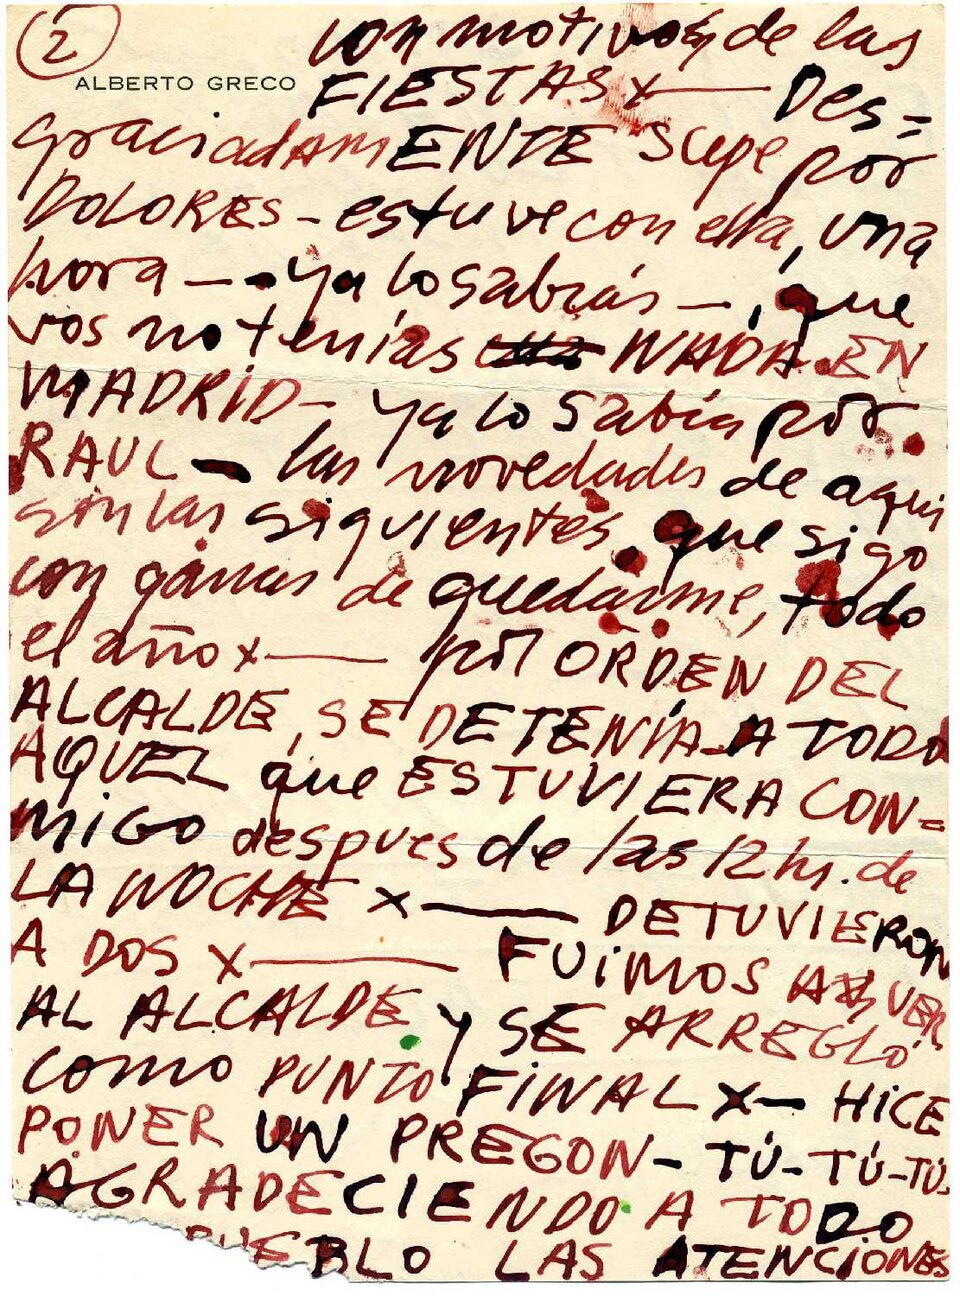 2
con motivos de las
ALBERTO GRECO
FIESTAS x — Des=
graciadamENTE supe por
DOLORES - estuve con ella, una
hora — - ya lo sabías —, que
vos no tenías NADA EN
MADRID - ya lo sabía por
RAUL - las novedades de aquí
son las siguientes, que sigo
con ganas de quedarme, todo
el año x — por ORDEN DEL
ALCALDE, SE DETENÍA A TODO
AQUEL que ESTUVIERA CON=
MIGO despues de las 12 hs. de
LA NOCHE x — DETUVIERON
A DOS x — FUIMOS A VER
AL ALCALDE y SE ARREGLÓ
como PUNTO FINAL x — HICE
PONER UN PREGON - TÚ-TÚ-TÚ
AGRADECIENDO A TODO
PUEBLO LAS ATENCIONES